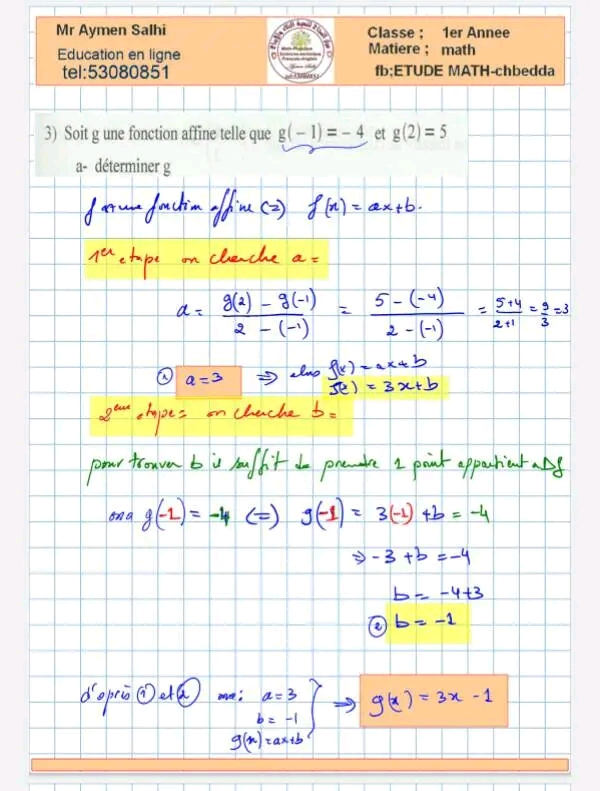 Mr Aymen Salhi
Education en ligne
tel:53080851
Classe ; 1er Annee
Matiere ; math
fb;ETUDE MATH-chbedda
3) Soit g une fonction affine telle que g(-1) = -4 et g(2) = 5
a- déterminer g
f est une fonction affine (=) f(x) = ax+b.
1er etape on cherche a =
a = (g(2) - g(-1)) / (2 - (-1)) = (5 - (-4)) / (2 - (-1)) = (5+4) / (2+1) = 9/3 = 3
① a = 3 => alors f(x) = ax+b
f(x) = 3x+b
2eme etape = on cherche b =
pour trouver b il suffit de prendre 1 point appartient a Df
on a g(-1) = -4 (=) g(-1) = 3(-1) +b = -4
=> -3 +b = -4
b = -4+3
② b = -1
d'après ① et ② on a: a = 3
b = -1
g(x) = ax+b
=> g(x) = 3x - 1